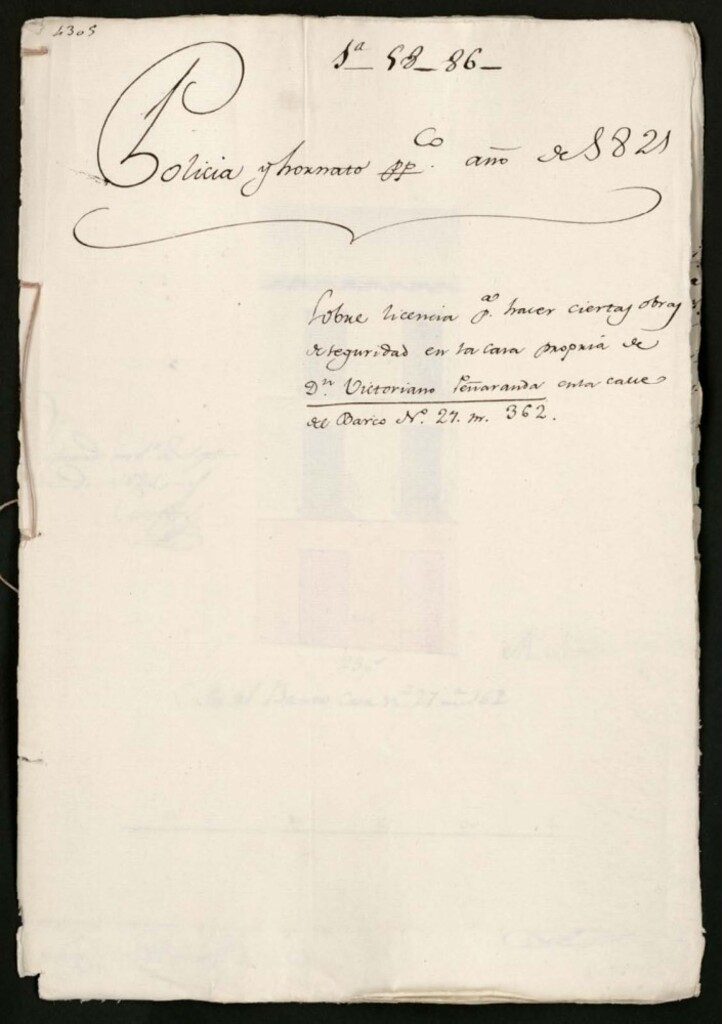 4305
1ª 58-86-
Policia y hornato pp.co año de 1821
Sobre licencia pª. hacer ciertas obras
de seguridad en la casa propria de
Dn. Victoriano Peñaranda en la calle
del Barco Nº. 27. m. 362.